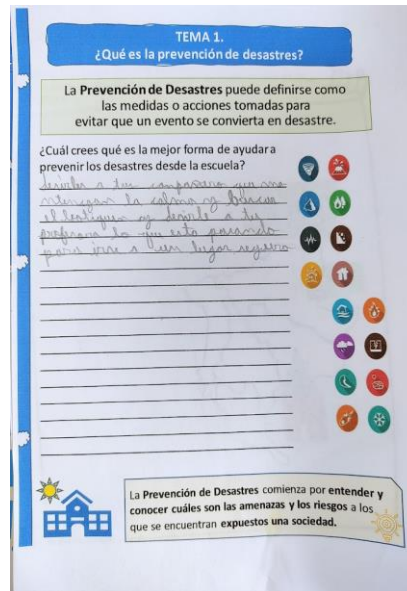 TEMA 1.
¿Qué es la prevención de desastres?
La Prevención de Desastres puede definirse como
las medidas o acciones tomadas para
evitar que un evento se convierta en desastre.
¿Cuál crees qué es la mejor forma de ayudar a
prevenir los desastres desde la escuela?
a tus compañero que ma
ntengan la calma y
el y a tu
profesora lo que esta pasando
para irse a un lugar seguro
La Prevención de Desastres comienza por entender y
conocer cuáles son las amenazas y los riesgos a los
que se encuentran expuestos una sociedad.